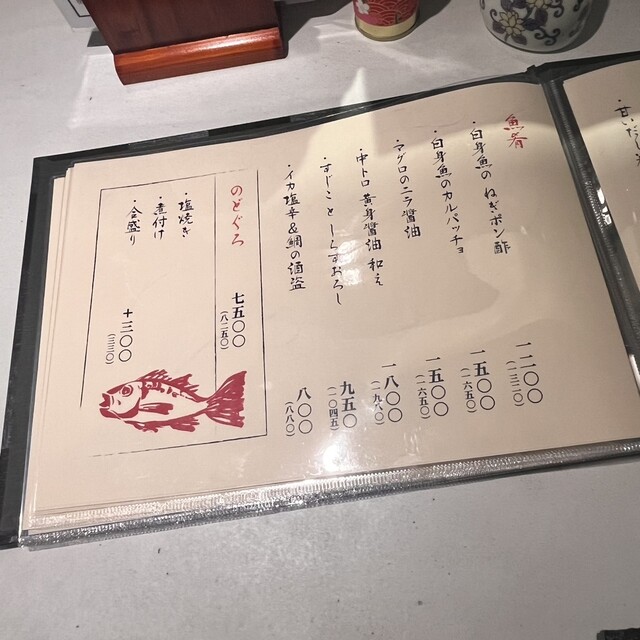 ・甘いだし
魚肴
・白身魚の ねぎポン酢 一二〇〇
(一三二〇)
・白身魚のカルパッチョ 一五〇〇
(一六五〇)
・マグロのニラ醤油 一五〇〇
(一六五〇)
・中トロ 黄身醤油 和え 一八〇〇
(一九八〇)
・すじことしらすおろし 九五〇
(一〇四五)
・イカ塩辛&鯛の酒盗 八〇〇
(八八〇)
のどぐろ 七五〇〇
(八二五〇)
・塩焼き
・煮付け
・合盛り +三〇〇
(三三〇)